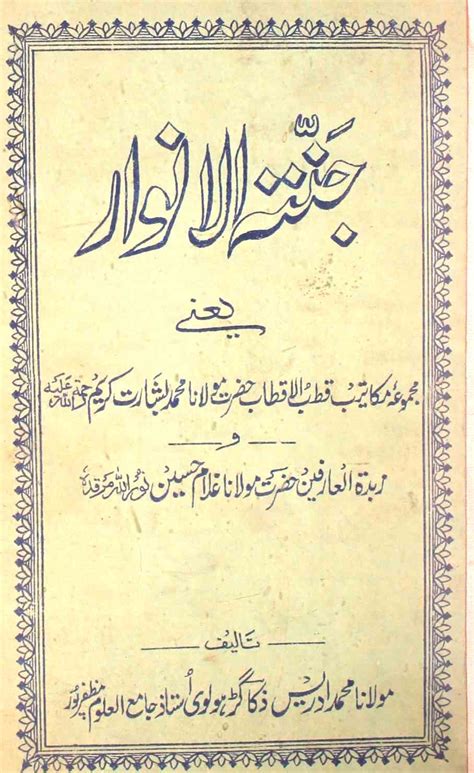 جنّتہ الانوار
یعنی
مجموعۂ مکاتیب قطب الاقطاب حضرت مولانا محمد بشارت کریم رحمۃ اللہ علیہ
و
زبدۃ العارفین حضرت مولانا غلام حسین نور اللہ مرقدہٗ
تالیف
مولانا محمد ادریس ذکا گڑہولوی اُستاذ جامع العلوم مظفر پور